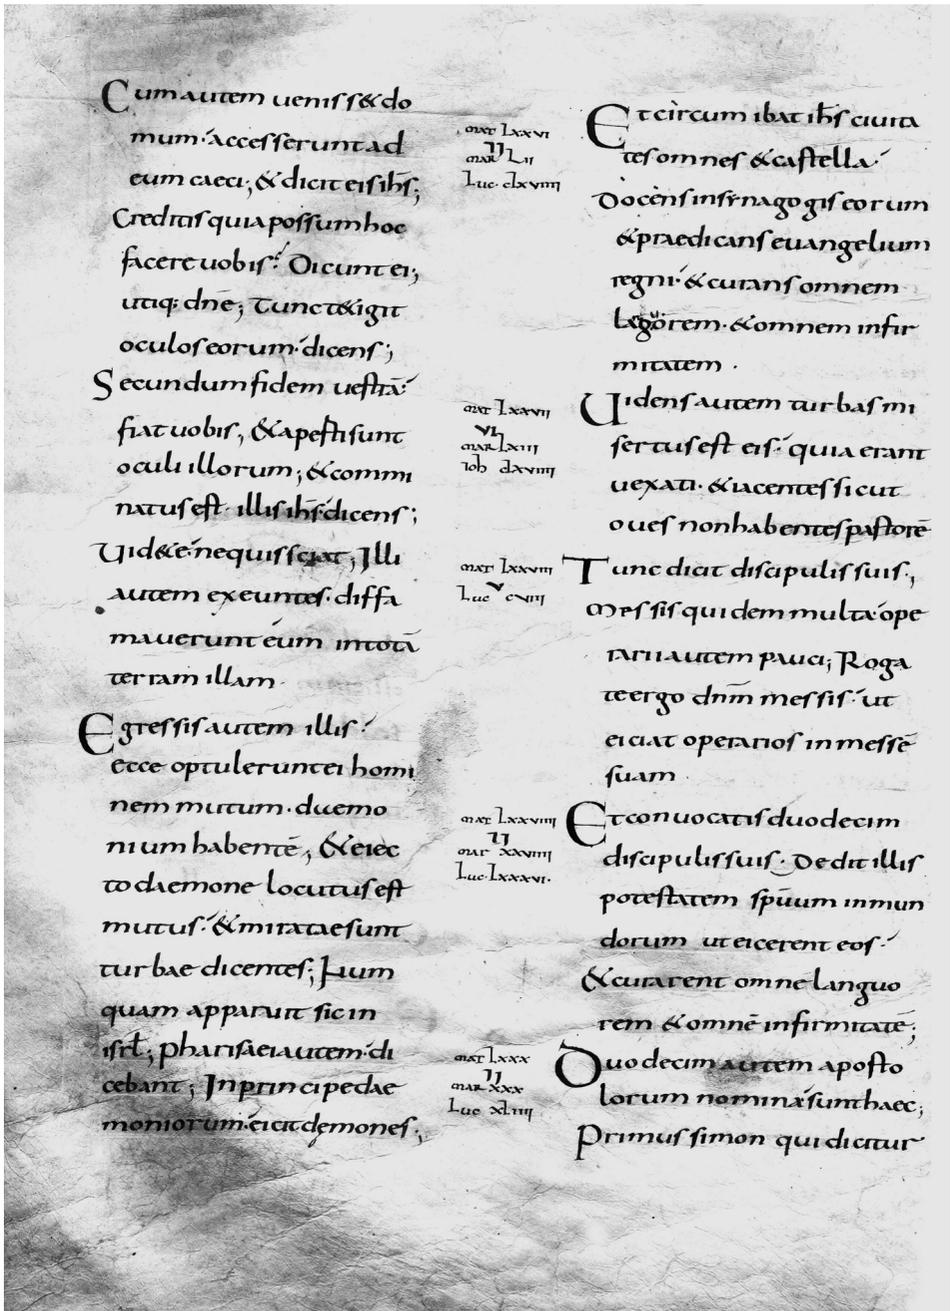 Cum autem ueniss& do
mum· accesserunt ad
eum caeci; & dicit eis ihs̄;
Creditis quia possum hoc
facere uobis? Dicunt ei;
utiq; dn̄e; Tunc t&igit
oculos eorum· dicens;
Secundum fidem uestrā·
fiat uobis, & aperti sunt
oculi illorum; & commi
natus est· illis ihs̄· dicens;
Uid&e· ne quis sciat; Illi
autem exeuntes· diffa
mauerunt eum in totā
terram illam·
Egressis autem illis·
ecce optulerunt ei homi
nem mutum· daemo
nium habentē, & eiec
to daemone locutus est
mutus· & miratae sunt
turbae dicentes; Num
quam apparuit sic in
isrl̄; pharisaei autem· di
cebant; In principe dae
moniorum· eicit dęmones;
mat lxxvi
II
mar lii
luc· clxviiii
mat lxxvii
VI
mar lxiii
ioh clxviiii
mat lxxviii
V
luc cviii
mat lxxviiii
II
mar xxviiii
luc· lxxxvi·
mat lxxx
II
mar xxx
luc xliiii
Et circum ibat ihs̄ ciuita
tes omnes & castella·
Docens in synagogis eorum
& praedicans euangelium
regni· & curans omnem
languorem· & omnem infir
mitatem·
Uidens autem turbas mi
sertus est eis· quia erant
uexati· & iacentes sicut
oues non habentes pastorē
Tunc dicit discipulis suis·,
Messis quidem multa· ope
rarii autem pauci; Roga
te ergo dnm̄ messis· ut
eiciat operarios in messē
suam·
Et conuocatis duodecim
discipulis suis· Dedit illis
potestatem spūum inmun
dorum ut eicerent eos·
& curarent omne languo
rem & omnē infirmitatē;
Duodecim autem aposto
lorum nomina· sunt haec;
Primus simon qui dicitur